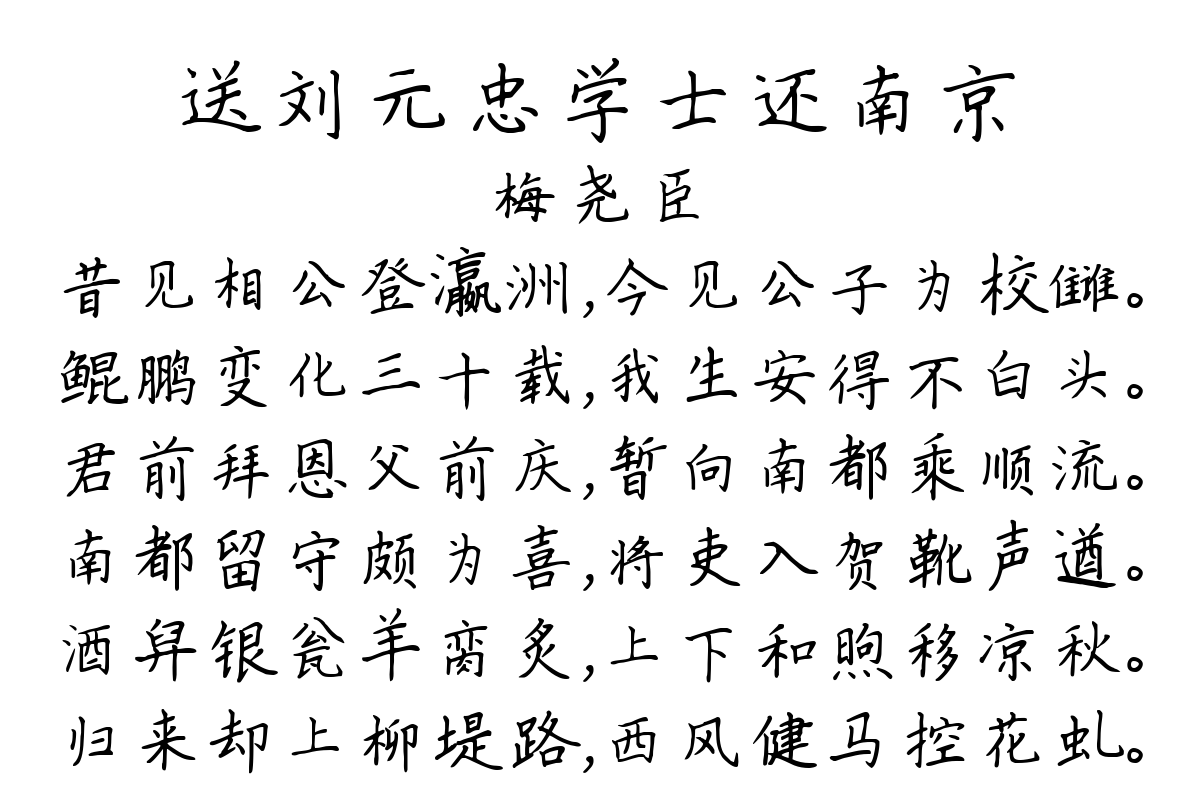 送刘元忠学士还南京
梅尧臣
昔见相公登瀛洲,今见公子为校雠。
鲲鹏变化三十载,我生安得不白头。
君前拜恩父前庆,暂向南都乘顺流。
南都留守颇为喜,将吏入贺靴声遒。
酒舁银瓮羊脔炙,上下和煦移凉秋。
归来却上柳堤路,西风健马控花虬。